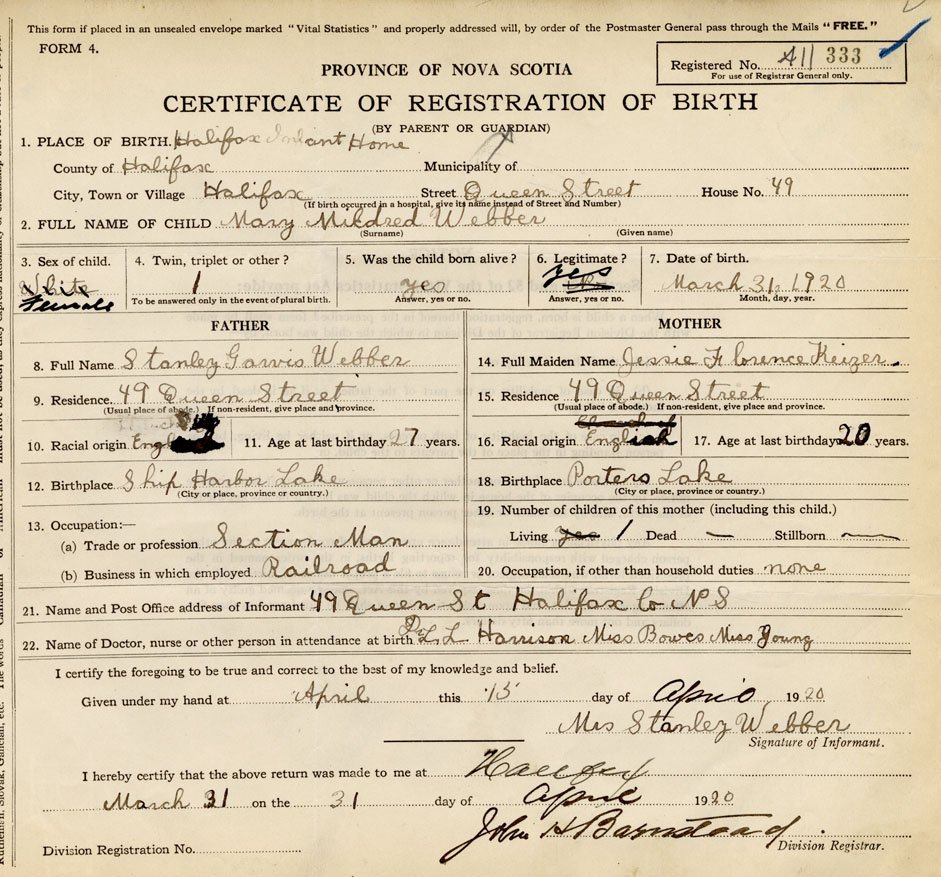 This form if placed in an unsealed envelope marked "Vital Statistics" and properly addressed will, by order of the Postmaster General pass through the Mails "FREE."
FORM 4.
Registered No. 411 333
For use of Registrar General only.
PROVINCE OF NOVA SCOTIA
CERTIFICATE OF REGISTRATION OF BIRTH
(BY PARENT OR GUARDIAN)
1. PLACE OF BIRTH. Halifax Infant Home
County of Halifax Municipality of
City, Town or Village Halifax Street Queen Street House No. 49
(If birth occurred in a hospital, give its name instead of Street and Number)
2. FULL NAME OF CHILD Mary Mildred Webber
(Surname) (Given name)
3. Sex of child. 4. Twin, triplet or other? 5. Was the child born alive? 6. Legitimate? 7. Date of birth.
White 1 yes yes March 31, 1920
Female To be answered only in the event of plural birth. Answer, yes or no. Answer, yes or no. Month, day, year.
FATHER MOTHER
8. Full Name Stanley Garvis Webber 14. Full Maiden Name Jessie Florence Keizer.
9. Residence. 49 Queen Street 15. Residence 49 Queen Street
(Usual place of abode.) If non-resident, give place and province. (Usual place of abode.) If non-resident, give place and province.
10. Racial origin Eng 11. Age at last birthday 27 years. 16. Racial origin English 17. Age at last birthday 20 years.
12. Birthplace Ship Harbor Lake 18. Birthplace Porters Lake
(City or place, province or country.) (City or place, province or country.)
13. Occupation:— 19. Number of children of this mother (including this child.)
(a) Trade or profession Section Man Living yes 1 Dead — Stillborn —
(b) Business in which employed Railroad 20. Occupation, if other than household duties none
21. Name and Post Office address of Informant 49 Queen St Halifax Co N S
22. Name of Doctor, nurse or other person in attendance at birth Dr L L Harrison Miss Bowes Miss Young
I certify the foregoing to be true and correct to the best of my knowledge and belief.
Given under my hand at April this 15 day of April 1920
Mrs Stanley Webber
Signature of Informant.
I hereby certify that the above return was made to me at Halifax
March 31 on the 31 day of April 1920
John H Barnstead
Division Registration No. Division Registrar.